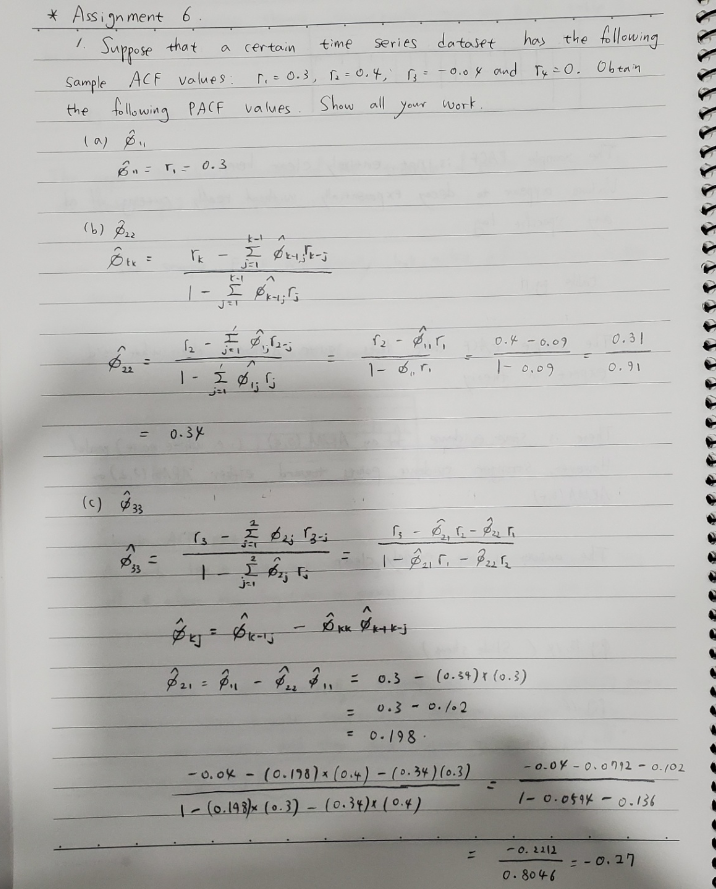 * Assignment 6.
1. Suppose that a certain time series dataset has the following
sample ACF values: r₁ = 0.3, r₂ = 0.4, r₃ = -0.04 and r₄ = 0. Obtain
the following PACF values. Show all your work.
(a) φ̂₁₁
φ̂₁₁ = r₁ = 0.3
(b) φ̂₂₂
φ̂ₖₖ = (rₖ - Σ_{j=1}^{k-1} φ̂ₖ₋₁,ⱼ rₖ₋ⱼ) / (1 - Σ_{j=1}^{k-1} φ̂ₖ₋₁,ⱼ rⱼ)
φ̂₂₂ = (r₂ - Σ_{j=1}^{1} φ̂₁ⱼ r₂₋ⱼ) / (1 - Σ_{j=1}^{1} φ̂₁ⱼ rⱼ) = (r₂ - φ̂₁₁ r₁) / (1 - φ̂₁₁ r₁) = (0.4 - 0.09) / (1 - 0.09) = 0.31 / 0.91
= 0.34
(c) φ̂₃₃
φ̂₃₃ = (r₃ - Σ_{j=1}^{2} φ̂₂ⱼ r₃₋ⱼ) / (1 - Σ_{j=1}^{2} φ̂₂ⱼ rⱼ) = (r₃ - φ̂₂₁ r₂ - φ̂₂₂ r₁) / (1 - φ̂₂₁ r₁ - φ̂₂₂ r₂)
φ̂ₖⱼ = φ̂ₖ₋₁ⱼ - φ̂ₖₖ φ̂ₖ₋₁ ₖ₋ⱼ
φ̂₂₁ = φ̂₁₁ - φ̂₂₂ φ̂₁₁ = 0.3 - (0.34) × (0.3)
= 0.3 - 0.102
= 0.198.
(-0.04 - (0.198) × (0.4) - (0.34)(0.3)) / (1 - (0.198) × (0.3) - (0.34) × (0.4)) = (-0.04 - 0.0792 - 0.102) / (1 - 0.0594 - 0.136)
= -0.2212 / 0.8046 = -0.27